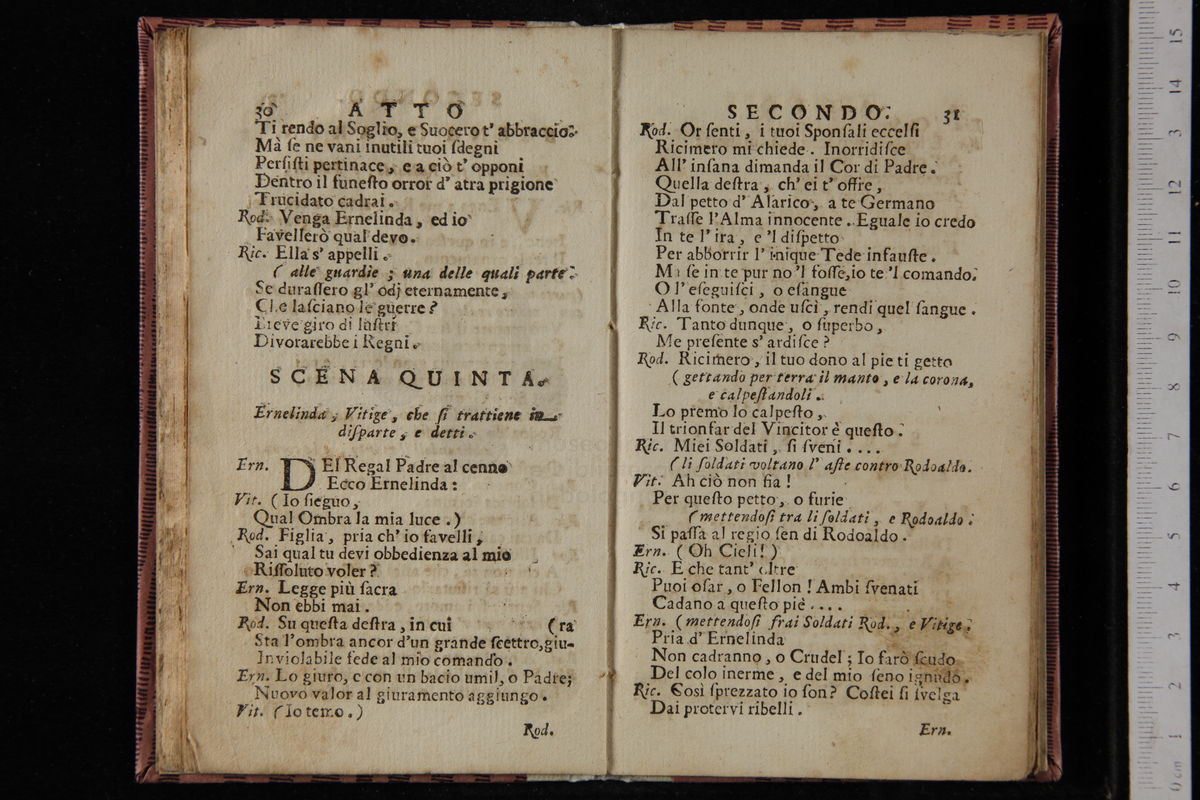 30 ATTO
Ti rendo al Soglio, e Suocero t' abbraccio.
Mà ſe ne vani inutili tuoi ſdegni
Perſiſti pertinace, e a ciò t' opponi
Dentro il funeſto orror d' atra prigione
Trucidato cadrai.
Rod. Venga Ernelinda, ed io
Favellerò qual devo.
Ric. Ella s' appelli.
( alle guardie ; una delle quali parte.
Se duraſſero gl' odj eternamente,
Che laſciano le guerre?
Breve giro di luſtri
Divorarebbe i Regni.
SCENA QUINTA.
Ernelinda, Vitige, che ſi trattiene in
diſparte, e detti.
Ern. DEl Regal Padre al cenno
Ecco Ernelinda:
Vit. ( Io ſieguo,
Qual Ombra la mia luce. )
Rod. Figlia, pria ch' io favelli,
Sai qual tu devi obbedienza al mio
Riſſoluto voler?
Ern. Legge più ſacra
Non ebbi mai.
Rod. Su queſta deſtra, in cui (ra
Sta l'ombra ancor d'un grande ſcettro,giu-
Inviolabile fede al mio comando.
Ern. Lo giuro, e con un bacio umil, o Padre;
Nuovo valor al giuramento aggiungo.
Vit. (Io temo.)
Rod.
SECONDO. 31
Rod. Or ſenti, i tuoi Sponſali eccelſi
Ricimero mi chiede. Inorridiſce
All' inſana dimanda il Cor di Padre.
Quella deſtra, ch' ei t' offre,
Dal petto d' Alarico, a te Germano
Traſſe l'Alma innocente. Eguale io credo
In te l' ira, e 'l diſpetto
Per abborrir l' inique Tede infauſte.
Ma ſe in te pur no 'l foſſe,io te 'l comando.
O l' eſeguiſci, o eſangue
Alla fonte, onde uſcì, rendi quel ſangue.
Ric. Tanto dunque, o ſuperbo,
Me preſente s' ardiſce?
Rod. Ricimero, il tuo dono al pie ti getto
( gettando per terra il manto, e la corona,
e calpeſtandoli.
Lo premo lo calpeſto,
Il trionfar del Vincitor è queſto.
Ric. Miei Soldati, ſi ſveni....
( li ſoldati voltano l' aſte contro Rodoaldo.
Vit. Ah ciò non fia!
Per queſto petto, o furie
( mettendoſi tra li ſoldati, e Rodoaldo.
Si paſſa al regio ſen di Rodoaldo.
Ern. ( Oh Cieli! )
Ric. E che tant' oltre
Puoi oſar, o Fellon! Ambi ſvenati
Cadano a queſto piè....
Ern. ( mettendoſi frai Soldati Rod., e Vitige.
Pria d' Ernelinda
Non cadranno, o Crudel; Io farò ſcudo
Del colo inerme, e del mio ſeno ignudo.
Ric. Così ſprezzato io ſon? Coſtei ſi ſvelga
Dai protervi ribelli.
Ern.
0 cm 1 2 3 4 5 6 7 8 9 10 11 12 13 14 15